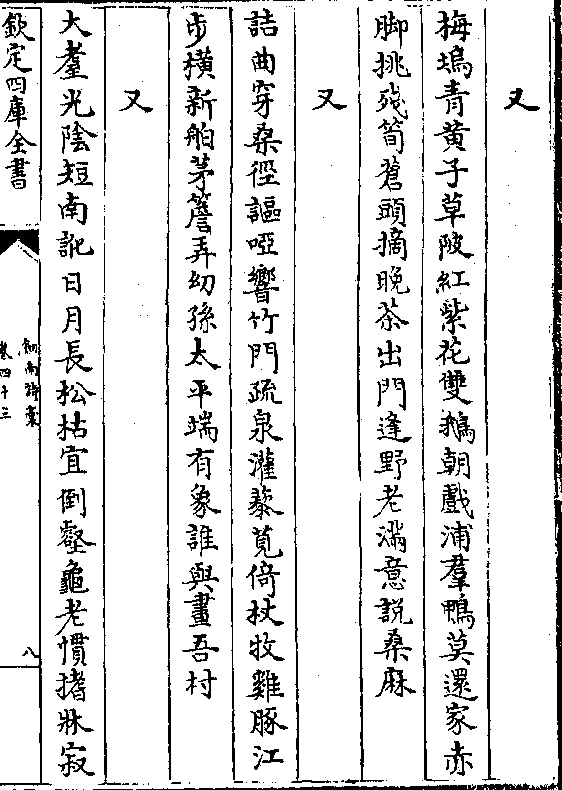 又
梅塢青黄子草陂紅紫花雙鵝朝戲浦羣鴨莫還家赤
脚挑殘筍蒼頭摘晚茶出門逢野老滿意説桑麻
又
詰曲穿桑徑謳啞響竹門疏泉灌藜莧倚杖牧雞豚江
步横新舶茅簷弄幼孫太平端有象誰與畫吾村
又
大耋光陰短南訛日月長松枯宜倒壑龜老慣搘牀寂
欽定四庫全書
劍南詩稾
卷四十三
八